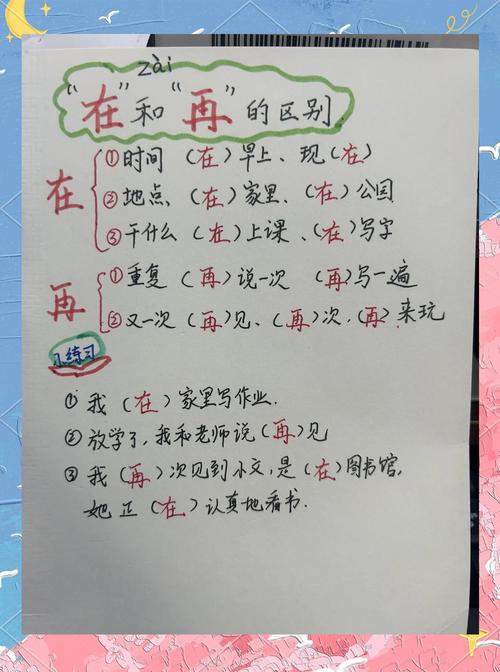 zài
“在”和“再”的区别
在
①时间 (在)早上、现(在)
②地点、(在)家里、(在)公园
③干什么 (在)上课、(在)写字
再
①重复 (再)说一次 (再)写一遍
②又一次 (再)见、(再)次、(再)来玩
小练习
①我(在)家里写作业.
②放学了,我和老师说(再)见
③我(再)次见到小文,是(在)图书馆,
她正(在)认真地看书.